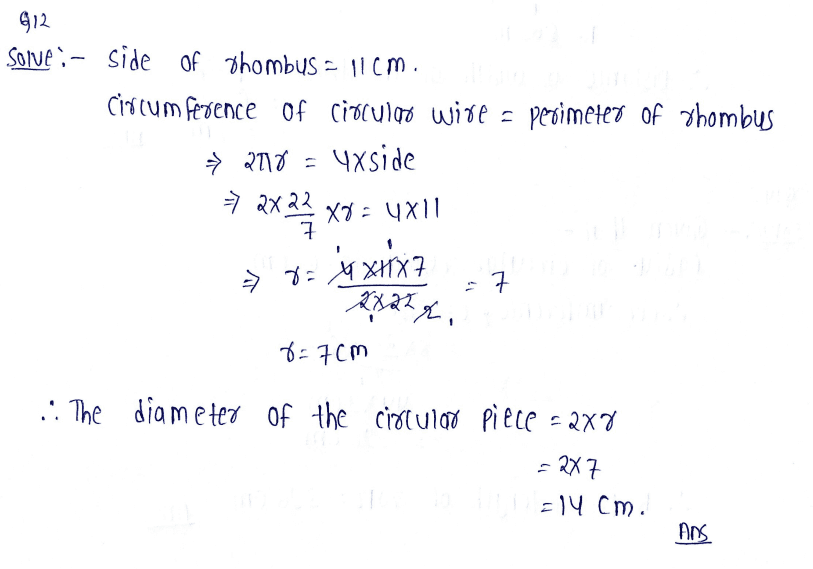 Q12
Solve:- Side of rhombus = 11cm.
Circumference of circular wire = perimeter of rhombus
⇒ 2πr = 4×side
⇒ 2×22/7 ×r = 4×11
⇒ r = 4×11×7/2×22 = 7
r = 7cm
∴ The diameter of the circular piece = 2×r
= 2×7
= 14 cm.
Ans